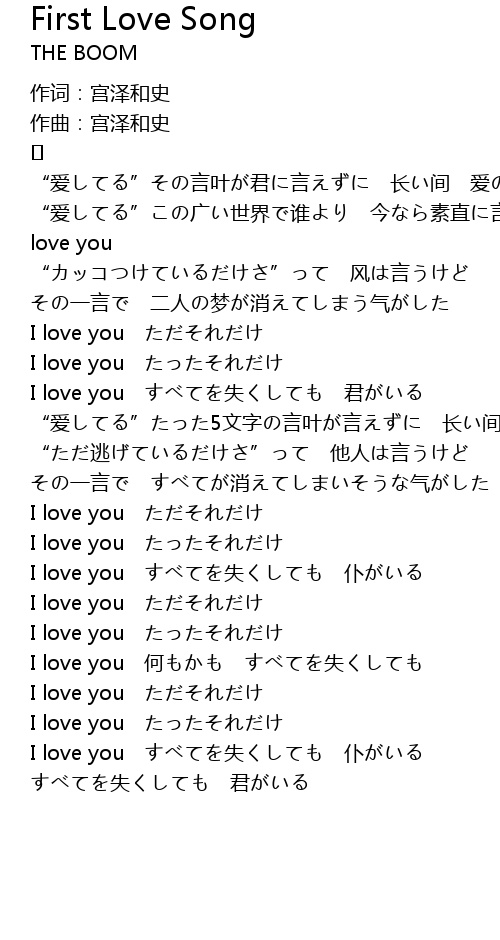 First Love Song
THE BOOM
作词：宫泽和史
作曲：宫泽和史
[]
“爱してる”その言叶が君に言えずに　长い间　爱の
“爱してる”この广い世界で谁より　今なら素直に言
love you
“カッコつけているだけさ”って　风は言うけど
その一言で　二人の梦が消えてしまう气がした
I love you　ただそれだけ
I love you　たったそれだけ
I love you　すべてを失くしても　君がいる
“爱してる”たった5文字の言叶が言えずに　长い间
“ただ逃げているだけさ”って　他人は言うけど
その一言で　すべてが消えてしまいそうな气がした
I love you　ただそれだけ
I love you　たったそれだけ
I love you　すべてを失くしても　仆がいる
I love you　ただそれだけ
I love you　たったそれだけ
I love you　何もかも　すべてを失くしても
I love you　ただそれだけ
I love you　たったそれだけ
I love you　すべてを失くしても　仆がいる
すべてを失くしても　君がいる